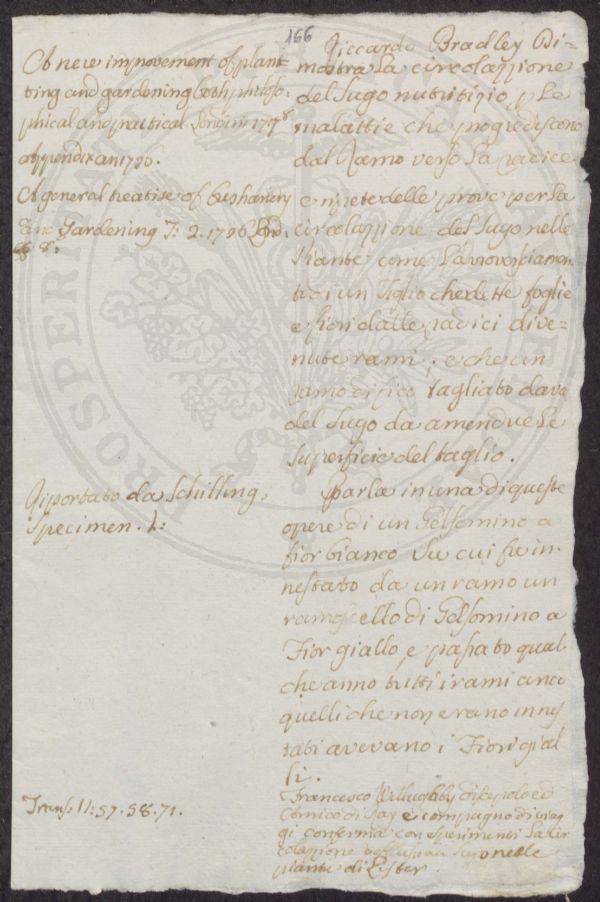 166
A new improvement of plan=
ting and gardening both philoso:
phical and practical. London 1717 8°
appendix an 1726.
A general treatise of husbandry
and Gardening T: 2. 1726 Lond.
8°.
Riportato da Schilling.
specimen.
Trans. 11: 57. 58. 71.
Riccardo Bradley Di=
mostra La circolazzione
del sugo nutritizio, p Le
malattie che progrediscono
dal Ramo verso La radice
e ripete delle prove per La
circolazzione del sugo nelle
Piante come La
di un Tiglio che dette foglie
e fiori dalle radici dive=
nute rami; e che un
ramo di fico tagliato dava
del sugo da amendue Le
superficie del taglio.
Parla in una di queste
opere di un Gelsomino a
fior bianco su cui fu in=
nestato da un ramo un
ramoscello di Gelsomino a
Fior giallo, e passato qual
che anno tutti i rami anco
quelli che non erano innes
tati avevano i Fiori gial
li.
Francesco Willughby discepolo ed
amico di Ray e compagno di viag
gi conferma con esperimenti La cir
colazzione del sugo nelle
piante di Lister.